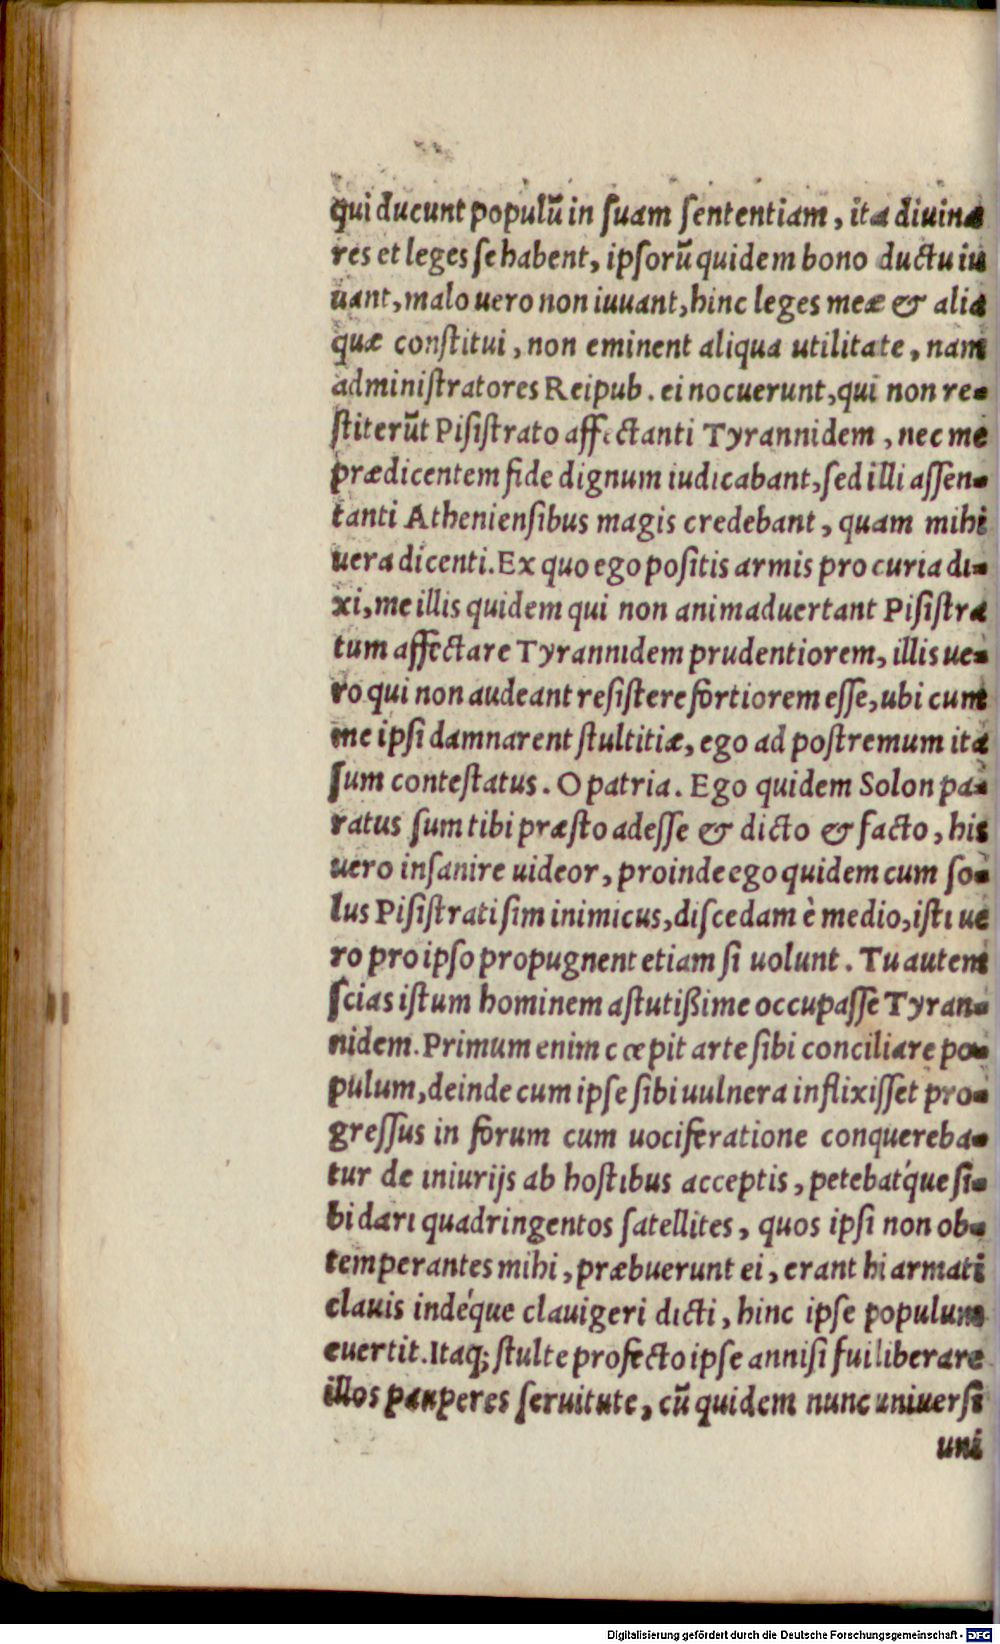 qui ducunt populũ in ſuam ſententiam, ita diuinæ
res et leges ſe habent, ipſorũ quidem bono ductu iu
uant, malo uero non iuuant, hinc leges meæ & alia
quæ conſtitui, non eminent aliqua utilitate, nam
adminiſtratores Reipub. ei nocuerunt, qui non re-
ſtiterũt Piſiſtrato affectanti Tyrannidem, nec me
prædicentem fide dignum iudicabant, ſed illi aſſen-
tanti Athenienſibus magis credebant, quam mihi
uera dicenti. Ex quo ego poſitis armis pro curia di-
xi, me illis quidem qui non animaduertant Piſiſtra
tum affectare Tyrannidem prudentiorem, illis ue-
ro qui non audeant reſiſtere fortiorem eſſe, ubi cum
me ipſi damnarent ſtultitiæ, ego ad poſtremum ita
ſum conteſtatus. O patria. Ego quidem Solon pa-
ratus ſum tibi præſto adeſſe & dicto & facto, his
uero inſanire uideor, proinde ego quidem cum ſo-
lus Piſiſtrati ſim inimicus, diſcedam è medio, iſti ue
ro pro ipſo propugnent etiam ſi uolunt. Tu autem
ſcias iſtum hominem aſtutißime occupaſſe Tyran-
nidem. Primum enim cœpit arte ſibi conciliare po-
pulum, deinde cum ipſe ſibi uulnera inflixiſſet pro-
greſſus in forum cum uociferatione conquereba-
tur de iniurijs ab hoſtibus acceptis, petebat'que ſi-
bi dari quadringentos ſatellites, quos ipſi non ob-
temperantes mihi, præbuerunt ei, erant hi armati
clauis indéque clauigeri dicti, hinc ipſe populum
euertit. Itaq; ſtulte profecto ipſe anniſi fui liberare
illos pauperes ſeruitute, cũ quidem nunc uniuerſi
uni
Digitalisierung gefördert durch die Deutsche Forschungsgemeinschaft - DFG